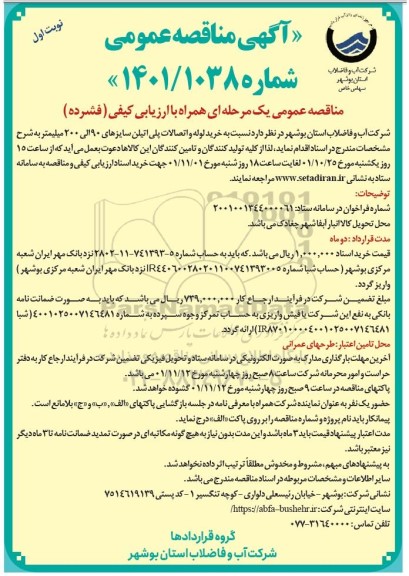 نوبت اول
شرکت آب و فاضلاب
استان بوشهر
سهامی خاص
«آگهی مناقصه عمومی
شماره ۱۴۰۱/۱۰۳۸»
مناقصه عمومی یک مرحله ای همراه با ارزیابی کیفی (فشرده)
شرکت آب و فاضلاب استان بوشهر در نظر دارد نسبت به خرید لوله و اتصالات پلی اتیلن سایزهای ۹۰ الی ۲۰۰ میلیمتر به شرح
مشخصات مندرج در اسناد اقدام نماید، لذا از کلیه تولید کنندگان و تامین کنندگان این کالاها دعوت بعمل می آید که از ساعت ۱۵
روز یکشنبه مورخ ۱۴۰۱/۱۰/۲۵ لغایت ساعت ۱۸ روز شنبه مورخ ۱۴۰۱/۱۱/۰۱ جهت خرید اسناد ارزیابی کیفی و مناقصه به سامانه
ستاد به نشانی www.setadiran.ir مراجعه نمایند.
توضیحات:
شماره فراخوان در سامانه ستاد: ۲۰۰۱۰۰۱۳۴۴۰۰۰۰۶۱
محل تحویل کالا انبار آبفا شهر چغادک می باشد.
مدت قرارداد: دو ماه
قیمت خرید اسناد ۱,۰۰۰,۰۰۰ ریال می باشد. که باید به حساب شماره ۵-۷۴۱۳۹۳-۱۱-۲۸۰۲ نزد بانک مهر ایران شعبه
مرکزی بوشهر ( حساب شبا شماره IR۴۴۰۶۰۰۲۸۰۲۰۱۱۰۰۷۴۱۳۹۳۰۰۵ نزد بانک مهر ایران شعبه مرکزی بوشهر )
واریز گردد.
مبلغ تضمین شرکت در فرآیند ارجاع کار ۷۳۹,۰۰۰,۰۰۰ ریال می باشد که باید به صورت ضمانت نامه
بانکی به نفع این شرکت یا فیش واریزی به حساب تمرکز وجوه سپرده به شماره ۴۰۰۱۰۲۵۰۰۷۱۴۶۴۸۱ (شبا
IR۸۷۰۱۰۰۰۰۴۰۰۱۰۲۵۰۰۷۱۴۶۴۸۱) ارائه گردد.
محل تامین اعتبار: طرحهای عمرانی
آخرین مهلت بارگذاری مدارک به صورت الکترونیکی در سامانه ستاد و تحویل فیزیکی تضمین شرکت در فرآیند ارجاع کار به دفتر
حراست و امور محرمانه شرکت ساعت ۸ صبح روز چهارشنبه مورخ ۰۱/۱۱/۱۲ می باشد.
پاکتهای مناقصه در ساعت ۹ صبح روز چهارشنبه مورخ ۰۱/۱۱/۱۲ گشوده خواهد شد.
حضور یک نفر به عنوان نماینده شرکت همراه با معرفی نامه در جلسه بازگشایی پاکتهای «الف»، «ب» و «ج» بلامانع است.
پیمانکار باید نام پروژه و شماره مناقصه را بر روی پاکت «الف» درج نماید.
مدت اعتبار پیشنهاد قیمت باید ۳ ماه باشد و این مدت بدون نیاز به هیچ گونه مکاتبه ای در صورت تمدید ضمانت نامه تا ۳ ماه دیگر
نیز معتبر باشد.
به پیشنهادهای مبهم، مشروط و مخدوش مطلقاً ترتیب اثر داده نخواهد شد.
سایر اطلاعات و مشخصات مربوطه در اسناد مناقصه مندرج می باشد.
نشانی شرکت: بوشهر - خیابان رئیسعلی دلواری - کوچه تنگسیر ۱ - کد پستی ۷۵۱۴۶۱۹۱۳۹
سایت اینترنتی شرکت: https://abfa-bushehr.ir/
تلفن تماس: ۳۱۶۴۰۰۰۰-۰۷۷
گروه قراردادها
شرکت آب و فاضلاب استان بوشهر